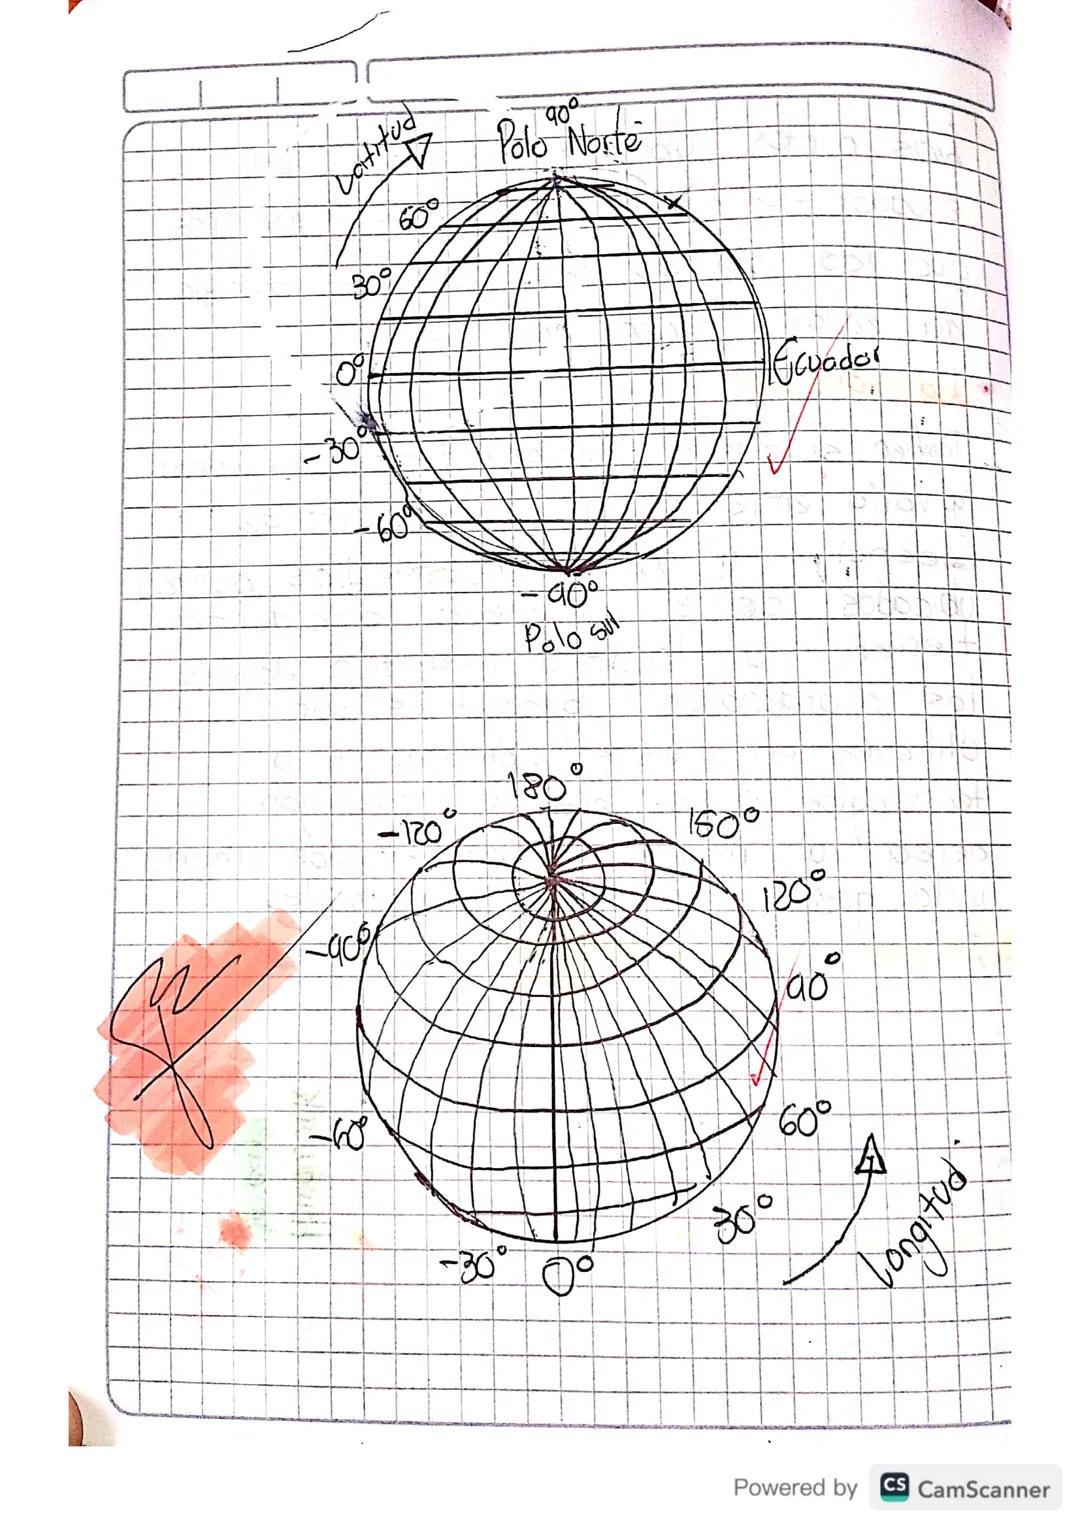 90°
Polo Norte
Latitud
60°
30°
0°
Ecuador
-30°
-60°
-90°
Polo sur
180°
-120°
150°
120°
-90°
90°
-60°
60°
30°
-30°
0°
Longitud
Powered by CS CamScanner